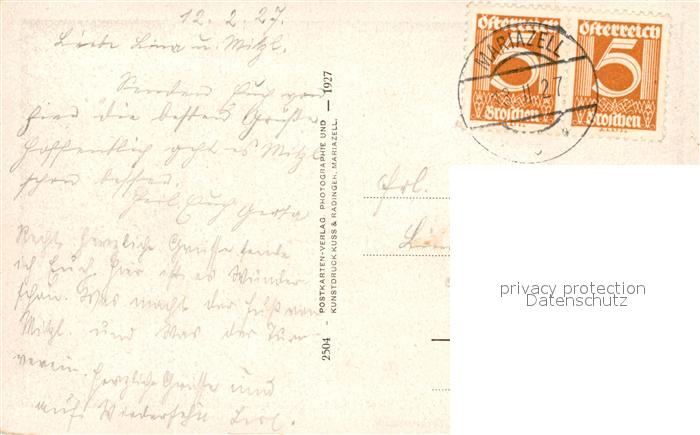 12.2.27.
Liebe Lina u. Mitzl.
Senden Euch von
hier die besten Grüße
Hoffentlich geht es Mitzl
schon besser.
Heil Euch Gerta
Recht herzliche Grüsse sende
ich Euch. Hier ist es Wunder
schön. Was macht der Fuß von
Mitzl. und Was der Turn-
verein. Herzliche Grüsse und
auf Wiedersehn
2504 - POSTKARTEN-VERLAG, PHOTOGRAPHIE UND — 1927
KUNSTDRUCK KUSS & RADINGER, MARIAZELL.
Österreich
5
Groschen
Österreich
5
Groschen
MARIAZELL
II. 27
Frl.
privacy protection
Datenschutz